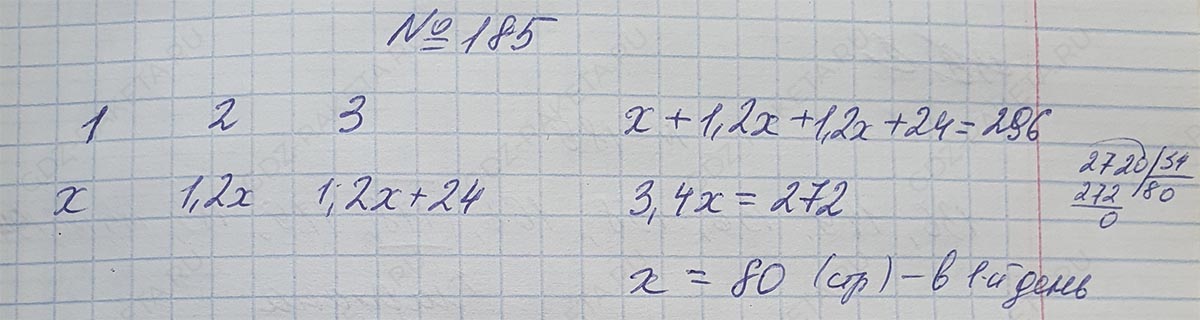 № 185
1 2 3 x + 1,2x + 1,2x + 24 = 296
x 1,2x 1,2x + 24 3,4x = 272
2720 34
272 80
0
x = 80 (стр) – в 1-й день